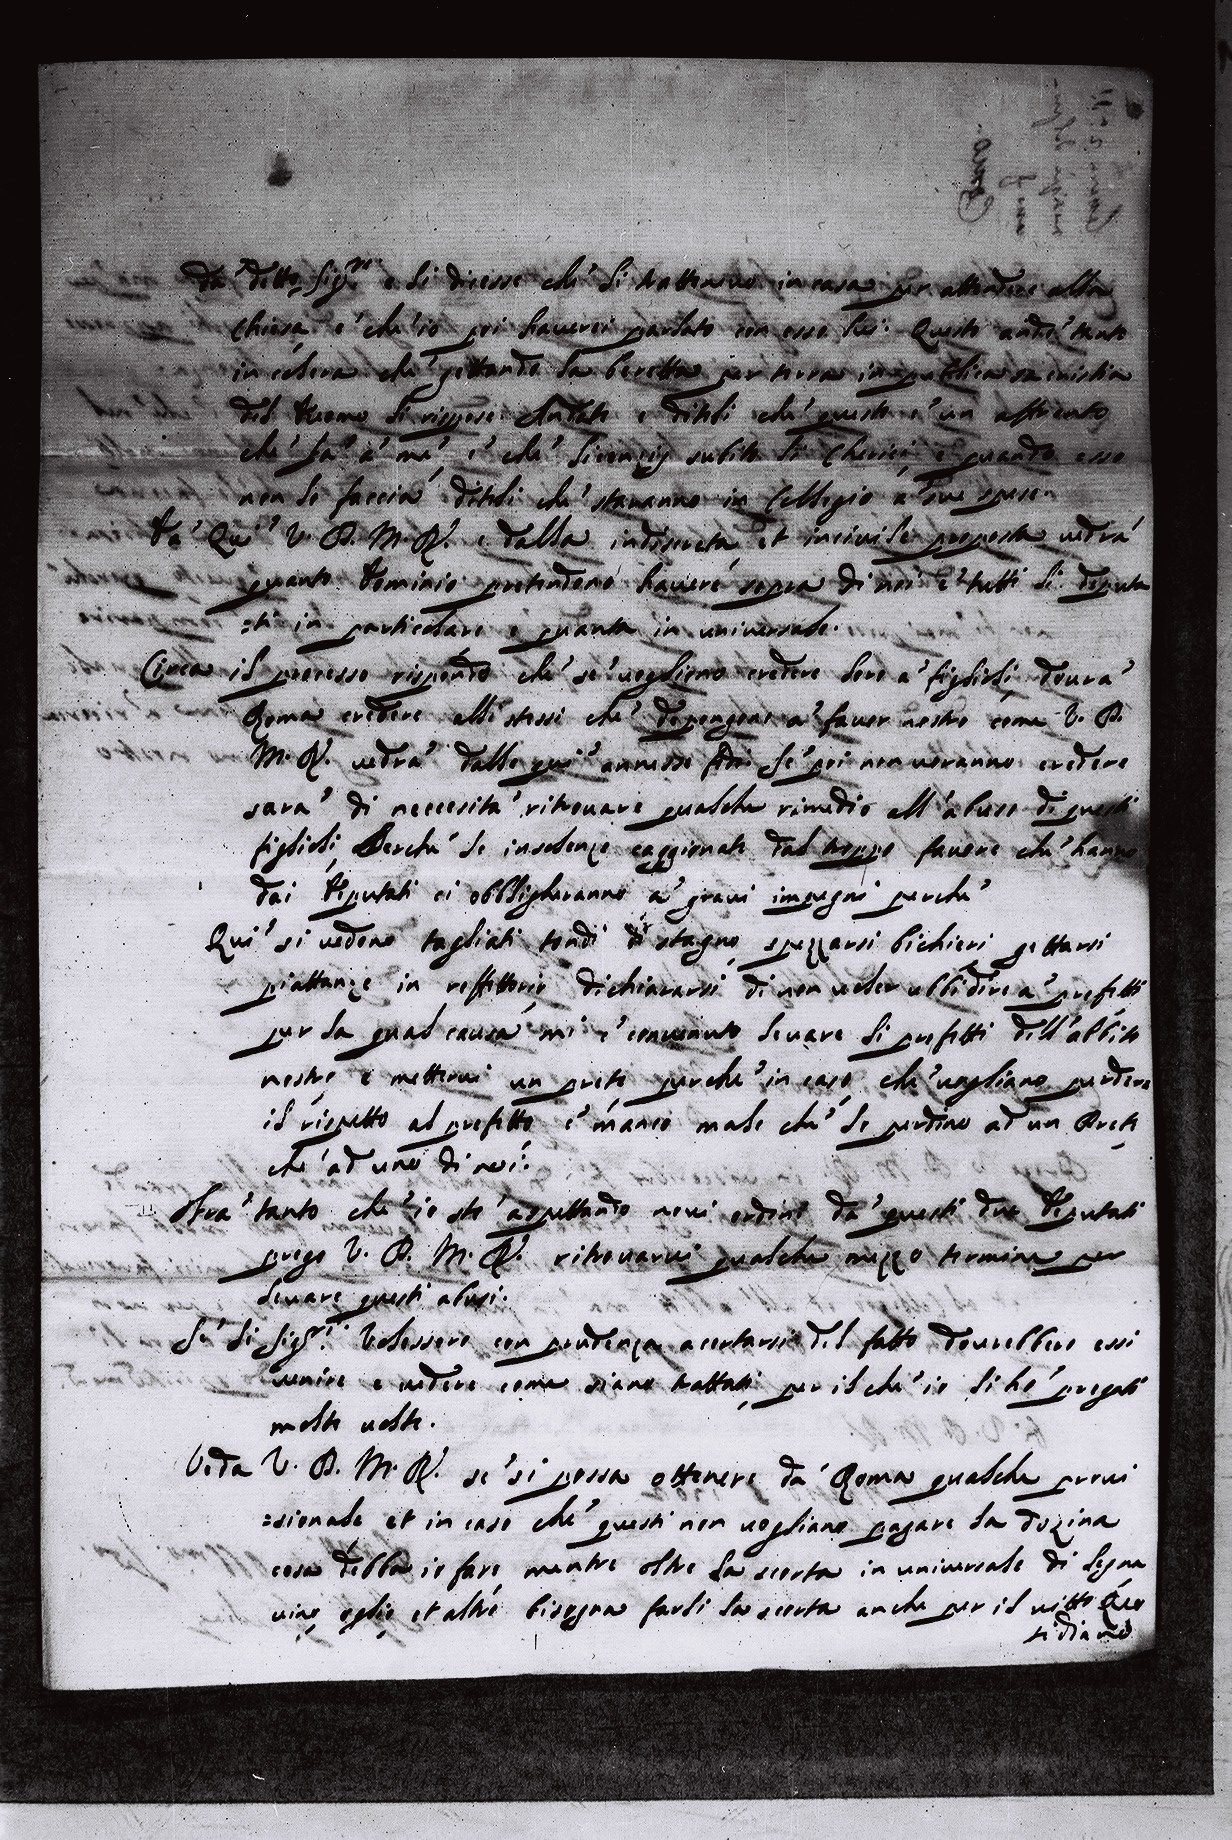 dà detto Sig.re e li dicesse che si tratteneva in casa per attendere alla
Chiesa e che io poi haverei parlato con esso lui. Questo andò tanto
in colera che gettando la beretta per terra in publica sacristia
del Duomo li rispose Andate e diteli che questo è un affronto
che fà à me e che licenzij subito li Chierici e quando esso
non lo faccia diteli che staranno in Collegio à sue spese.
Da Qui V. P. M. R. e dalla indiscreta et incivile proposta vedrà
quanto Dominio pretendono havere sopra di noi e tutti li deputa
=ti in particolare e quanto in universale.
Circa il processo rispondo che se vogliono credere loro a figlioli dourà
Roma credere alli stessi che depongono a favor nostro come V. P.
M. R. vedrà dalle qui annesse fedi se poi non voranno credere
sarà di neccesità ritrovare qualche rimedio all'abuso di questi
figlioli Perche le insolenze caggionate dal troppo favore che hanno
dai Deputati ci obbligheranno a gravi impegni perche
Qui si vedono tagliati tondi di stagno spezzarsi bichieri gettarsi
piattanze in reffettorio dichiararsi di non voler ubbidire a prefetti
per la qual causa mi è convenuto levare li prefetti dell'abbito
nostro e mettervi un prete perche in caso che vogliano perdere
il rispetto al prefetto è manco male che lo perdino ad un Prete
che ad uno di noi.
Fra tanto che io stò aspettando novi ordini dà questi due Deputati
prego V. P. M. R. ritrovarvi qualche mezzo termine per
levare questi abusi.
Se li Sig.ri Volessero con prudenza acertarsi del fatto dourebbero essi
venire e vedere come siano trattati per il che io li hò pregati
molte volte.
Veda V. P. M. R. se si possa ottenere dà Roma qualche provi
=sionale et in caso che questi non vogliano pagare la dozina
cosa debba io fare mentre oltre la scorta in universale di legna
vino oglio et altro bisogna farli la scorta anche per il vitto Quo
tidiano